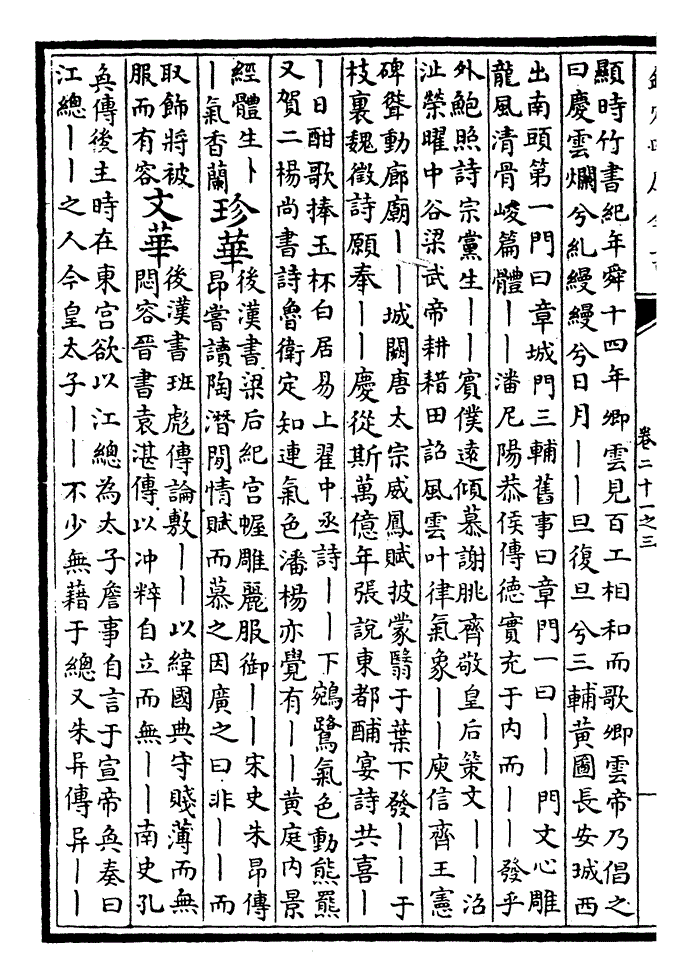 卷二十一之三
顯時竹書紀年舜十四年卿雲見百工相和而歌卿雲帝乃倡之
曰慶雲爛兮糺縵縵兮日月丨丨旦復旦兮三輔黃圖長安城西
出南頭第一門曰章城門三輔舊事曰章門一曰丨丨門文心雕
龍風清骨峻篇體丨丨潘尼陽恭侯傳德實充于内而丨丨發乎
外鮑照詩宗黨生丨丨賓僕遠傾慕謝朓齊敬皇后策文丨丨沼
沚榮曜中谷梁武帝耕耤田詔風雲叶律氣象丨丨庾信齊王憲
碑聳動廊廟丨丨城闕唐太宗威鳳賦披蒙翳于葉下發丨丨于
枝裏魏徵詩願奉丨丨慶從斯萬億年張說東都酺宴詩共喜丨
丨日酣歌捧玉杯白居易上翟中丞詩丨丨下鵷鷺氣色動熊羆
又賀二楊尚書詩魯衛定知連氣色潘楊亦覺有丨丨黃庭内景
經體生丨
丨氣香蘭
珍華
後漢書梁后紀宮幄雕麗服御丨丨宋史朱昂傳
昂嘗讀陶潛閒情賦而慕之因廣之曰非丨丨而
取飾將被
服而有容
文華
後漢書班彪傳論敷丨丨以緯國典守賤薄而無
悶容晉書袁湛傳以冲粹自立而無丨丨南史孔
奐傳後主時在東宮欲以江總為太子詹事自言于宣帝奐奏曰
江總丨丨之人今皇太子丨丨不少無藉于總又朱异傳异丨丨